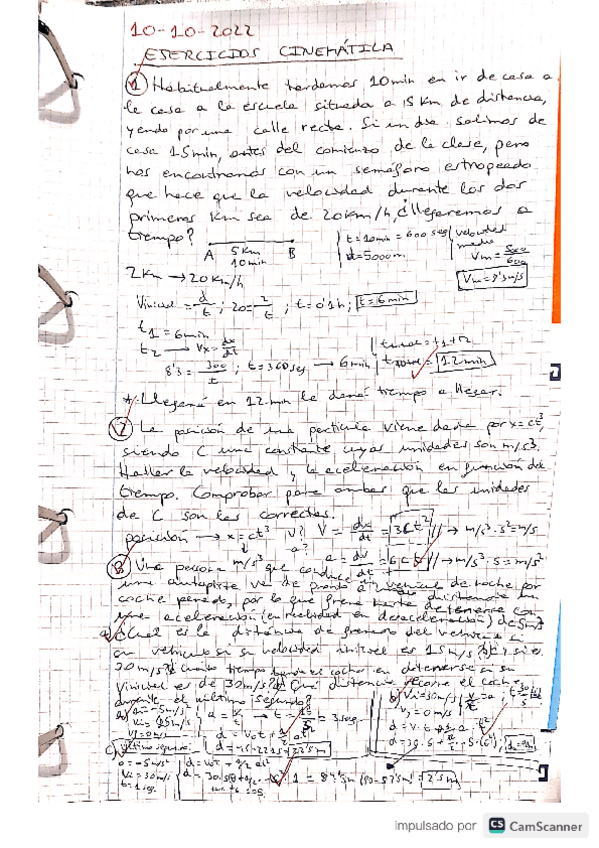 10-10-2022
EJERCICIOS CINEMÁTICA
① Habitualmente tardamos 10min en ir de casa a
la casa a la escuela situada a 15 km de distancia,
yendo por una calle recta. Si un día salimos de
casa 15min, antes del comienzo de la clase, pero
nos encontramos con un semáforo estropeado
que hace que la velocidad durante los dos
primeros Km sea de 20km/h, ¿llegaremos a
tiempo?
A 5km 10min B
t=10min = 600 seg
d=5000m
velocidad media
Vm = 5000/600
Vm = 8'3m/s
2km → 20km/h
Vinicial = d/t ; 20 = 2/t ; t=0'1h ; t=6min
t1 = 6min
t2 → Vx = dx/dt
8'3 = 300/t ; t=360seg → 6min
ttotal = t1+t2
ttotal = 12min
* Llegará en 12min le dará tiempo a llegar.
② La posición de una partícula viene dada por x=ct³,
siendo C una constante cuyas unidades son m/s³.
Hallar la velocidad, y la aceleración en función del
tiempo. Comprobar para ambas que las unidades
de C son las correctas.
posición → x=ct³ V? V = dx/dt = 3Ct² → m/s³·s²=m/s
m/s³ a? a = dv/dt = 6ct → m/s³·s = m/s²
③ Una persona que conduce
una autopista ve de pronto un vehículo de noche por
coche parado, por lo que frena hasta detenerse con
una aceleración (en realidad en desaceleración) de 5m/s
a) ¿Cuál es la distancia de frenado del vehículo si
su vehículo si su velocidad inicial es 15m/s? b) ¿y si es
30m/s? ¿Cuánto tiempo tarda el coche en detenerse si su
Vinicial es de 30m/s? ¿Qué distancia recorre el coche
durante el último segundo?
a) a=-5m/s²
Vi=15m/s
Vf=0m/s
= 3seg
b) Vi=30m/s
Vf=0m/s
c) último segundo
a=-5m/s²
Vi=30m/s
impulsado por CS CamScanner